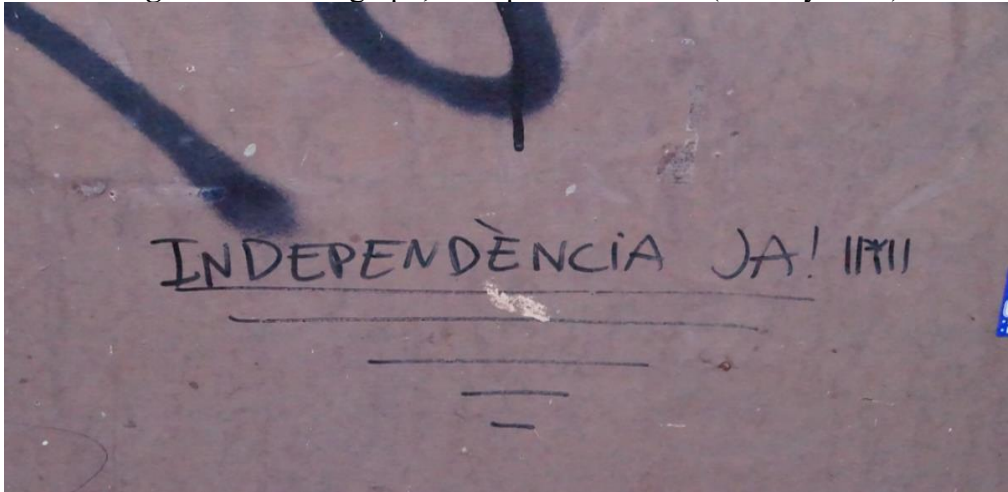 INDEPENDÈNCiA JA! ||*||